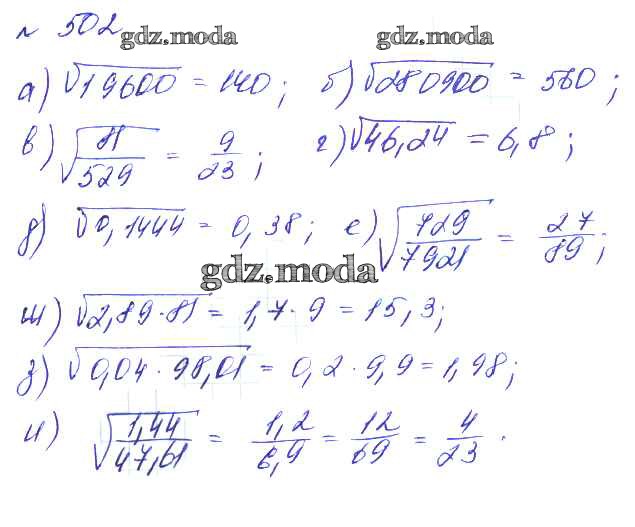 № 502
gdz.moda gdz.moda
а) √19600 = 140; б) √280900 = 530;
в) √(81/529) = 9/23; г) √46,24 = 6,8;
д) √0,1444 = 0,38; е) √(729/7921) = 27/89;
gdz.moda
ж) √2,89·81 = 1,7·9 = 15,3;
з) √0,04·98,01 = 0,2·9,9 = 1,98;
и) √(1,44/47,61) = 1,2/6,9 = 12/69 = 4/23.